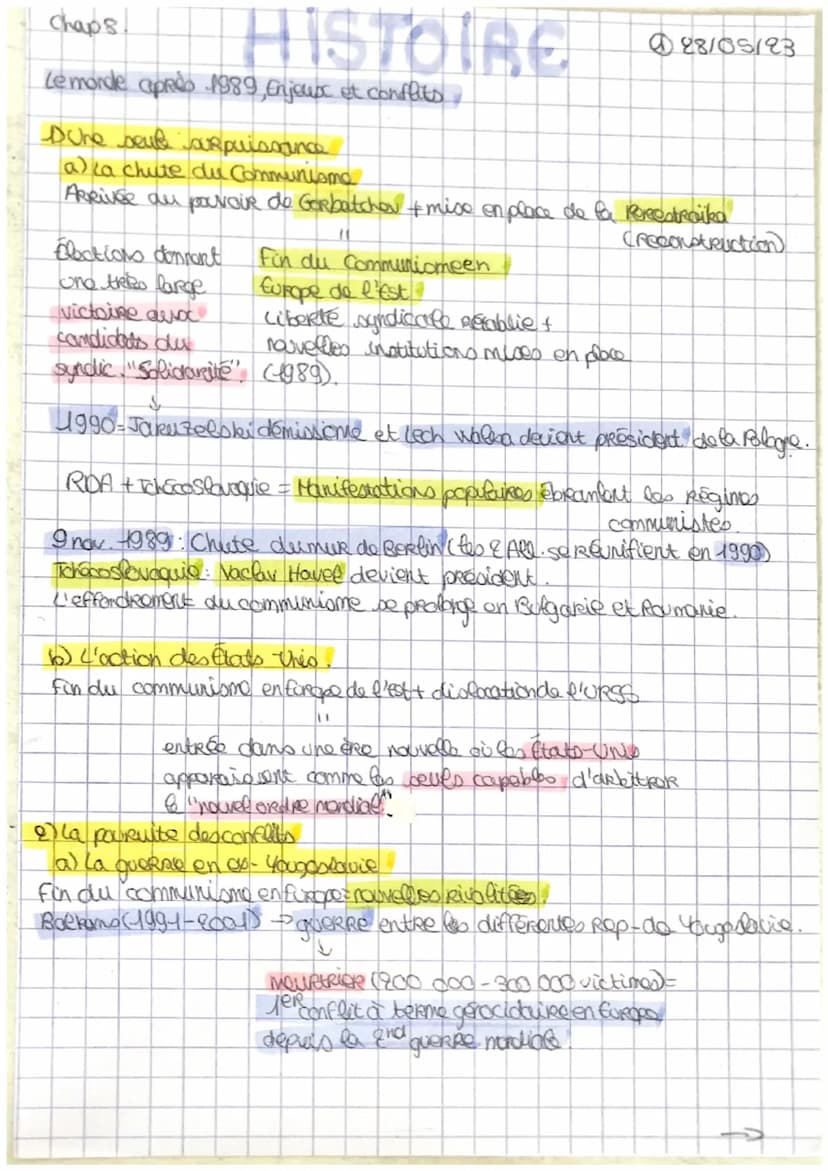 Chap 8.
HISTOIRE
① 28/05/23
Le monde après 1989, Enjeux et conflits
1) Une seule surpuissance
a) La chute du Communisme
Arrivée au pouvoir de Gorbatchev + mise en place de la Perestroïka
(reconstruction)
"
Élections donnant
une très large
victoire aux
candidats du
syndic. "Solidarité".
Fin du Communisme en
Europe de l'Est
Liberté syndicale rétablie +
nouvelles institutions mises en place
(1989).
↓
1990 = Jaruzelski démissionne et Lech Walesa devient président de la Pologne.
RDA + Tchécoslovaquie = Manifestations populaires ébranlent les Régimes
communistes
9 nov. 1989 : Chute du mur de Berlin (les 2 All. se Réunifient en 1990)
Tchécoslovaquie : Vaclav Havel devient président.
L'effondrement du communisme se prolonge en Bulgarie et Roumanie.
b) L'action des États-Unis.
Fin du communisme en Europe de l'est + dislocation de l'URSS
"
entrée dans une ère nouvelle où les États-Unis
apparaissent comme les seuls capables d'arbitrer
le "nouvel ordre mondial".
2) La poursuite des conflits
a) La guerre en ex-Yougoslavie
Fin du communisme en Europe = nouvelles rivalités.
(1991-2001) → guerre entre les différentes Rep. de Yougoslavie.
↓
meurtrière (200 000 - 300 000 victimes) =
1er conflit à terme génocidaire en Europe
depuis la 2nd guerre mondiale.
→